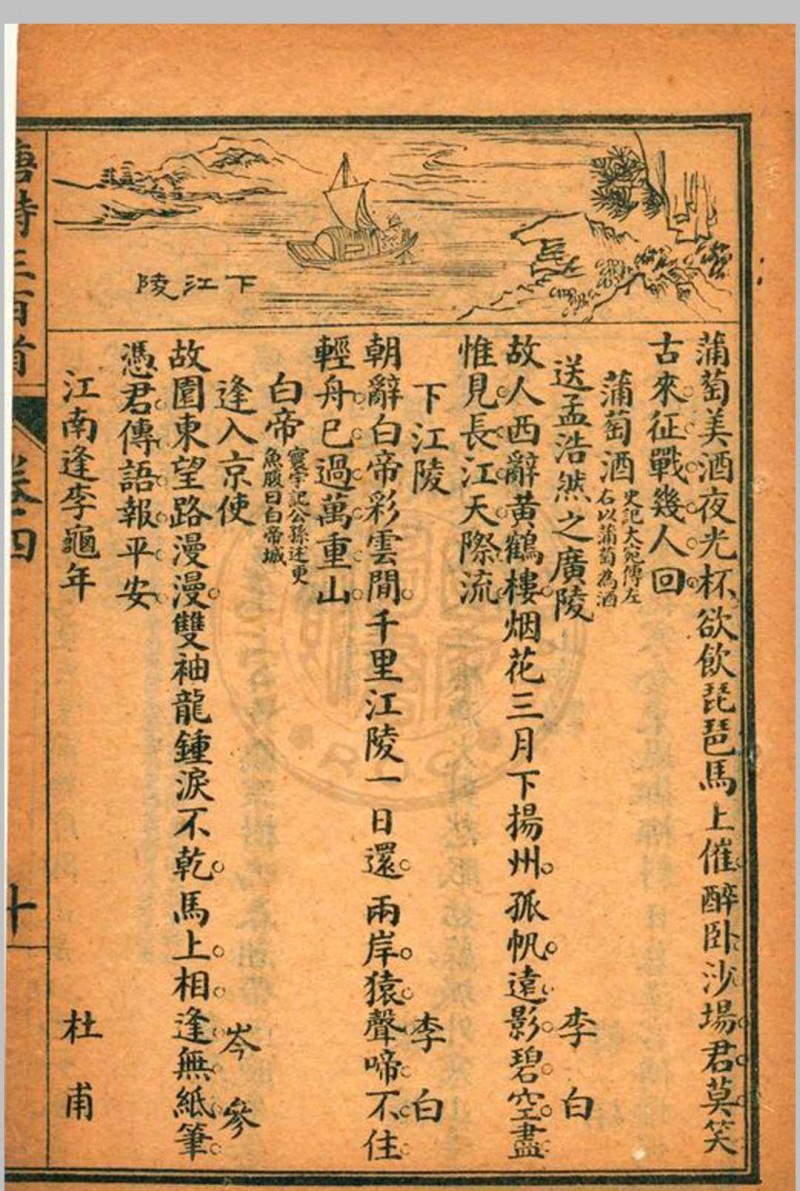 下江陵
蒲萄美酒夜光杯欲飲琵琶馬上催醉臥沙場君莫笑
古來征戰幾人回
蒲萄酒 史記大宛傳左
右以蒲萄為酒
送孟浩然之廣陵 李白
故人西辭黃鶴樓烟花三月下揚州孤帆遠影碧空盡
惟見長江天際流
下江陵 李白
朝辭白帝彩雲間千里江陵一日還兩岸猿聲啼不住
輕舟已過萬重山
白帝 寰宇記公孫述更
魚腹曰白帝城
逢入京使 岑參
故園東望路漫漫雙袖龍鍾淚不乾馬上相逢無紙筆
憑君傳語報平安
江南逢李龜年 杜甫
唐詩三百首 卷四 十